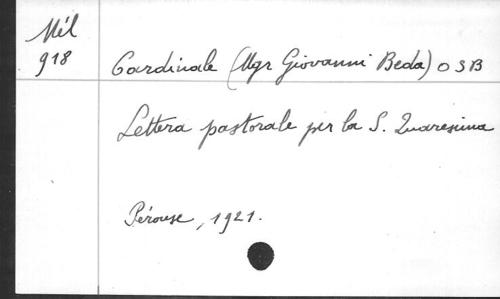 Mél
918
Cardinale (Mgr Giovanni Beda) OSB
Lettera pastorale per la S. Quaresima
Pérouse, 1921.